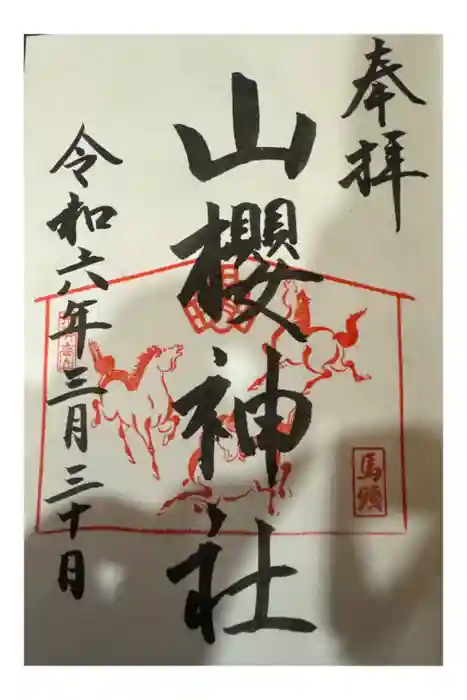 奉拝
馬頭
山櫻神社
令和六年三月三十日